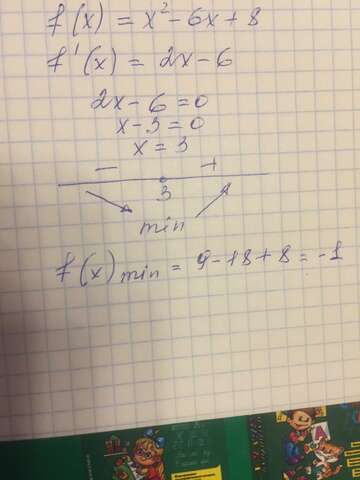 f(x) = x² - 6x + 8
f'(x) = 2x - 6
2x - 6 = 0
x - 3 = 0
x = 3
- +
3
min
f(x) min = 9 - 18 + 8 = -1